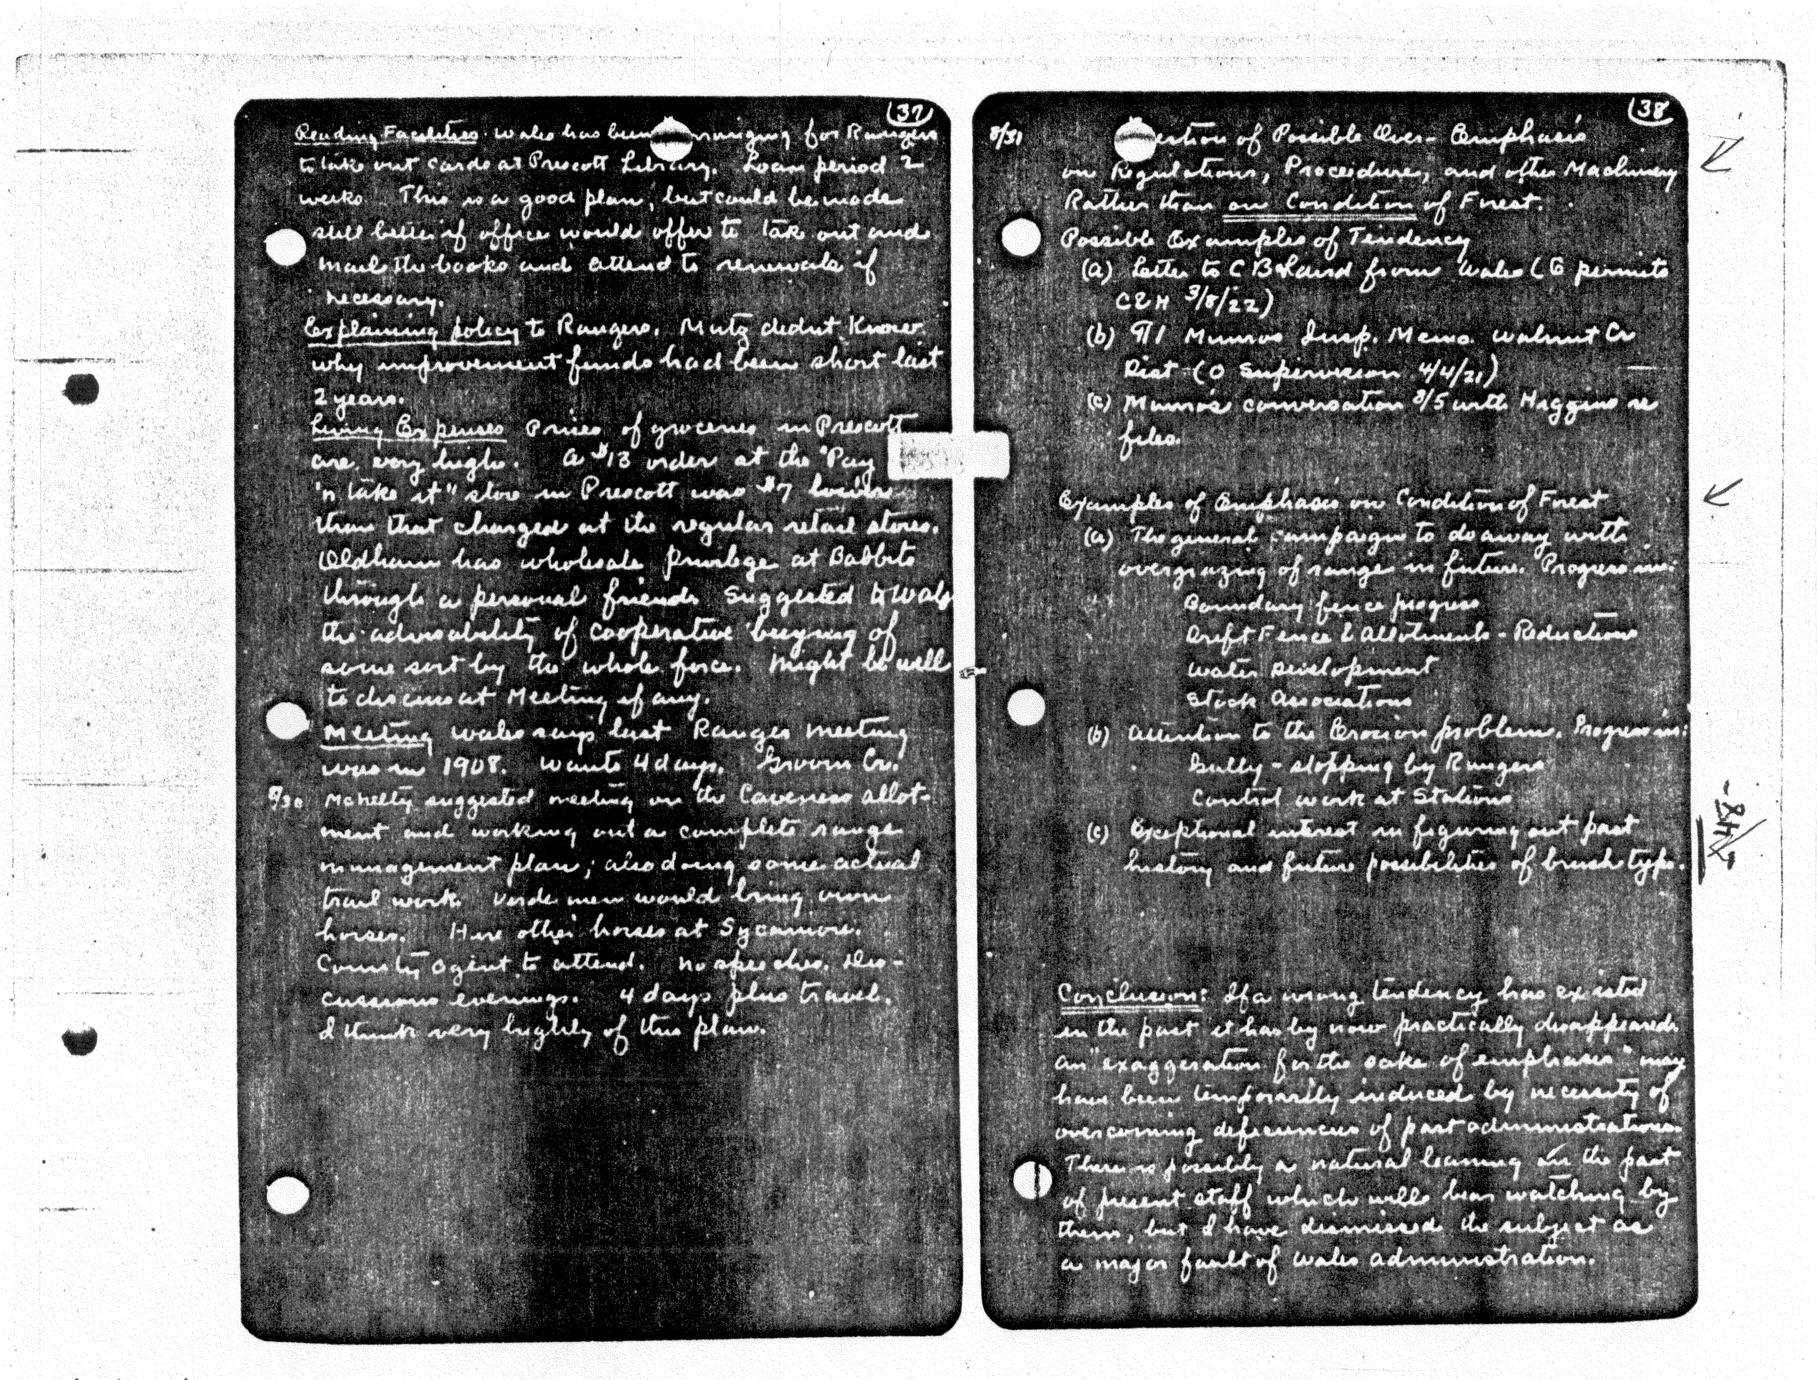 (37)
Reading Facilities. Wales has been arranging for Rangers
to take out cards at Prescott Library. Loan period 2
weeks. This is a good plan, but could be made
still better if office would offer to take out and
mail the books and attend to renewals if
necessary.
Explaining policy to Rangers. Mutz didnt know
why improvement funds had been short last
2 years.
Living Expenses Prices of groceries in Prescott
are very high. A $13 order at the "Pay
'n take it" store in Prescott was $7 lower
than that charged at the regular retail stores.
Oldham has wholesale privilege at Babbits
through a personal friend. Suggested to Wales
the advisability of cooperative buying of
some sort by the whole force. Might be well
to discuss at Meeting if any.
Meeting Wales says last Ranger meeting
was in 1908. Wants 4 days. Groom Cr.
8/30 McNelty suggested meeting on the Caveness allot-
ment and working out a complete range
management plan; also doing some actual
trail work. Verde men would bring own
horses. Hire other horses at Sycamore.
County Agent to attend. No speeches. Dis-
cussions evenings. 4 days plus travel.
I think very highly of this plan.
(38)
8/31 estion of Possible Over-Emphasis
on Regulations, Procedure, and other Machinery
Rather than on Condition of Forest.
Possible Examples of Tendency
(a) Letter to C B Laird from Wales (G permits
C&H 3/8/22)
(b) ¶1 Munros Insp. Memo. Walnut Cr
Dist (O Supervision 4/4/21)
(c) Munro's conversation 8/5 with Higgins re
files.
Examples of Emphasis on Condition of Forest
(a) The general campaign to do away with
overgrazing of range in future. Progress in:
Boundary fence progress
Drift Fence & Allotments - Reductions
Water Development
Stock Associations
(b) Attention to the Erosion problem. Progress in:
Gully-stopping by Rangers
Control work at Stations
(c) Exceptional interest in figuring out past
history and future possibilities of brush type.
Conclusion: If a wrong tendency has existed
in the past it has by now practically disappeared.
An "exaggeration for the sake of emphasis" may
have been temporarily induced by necessity of
overcoming deficiencies of past administrations.
There is possibly a natural leaning on the part
of present staff which will bear watching by
them, but I have dismissed the subject as
a major fault of Wales administration.